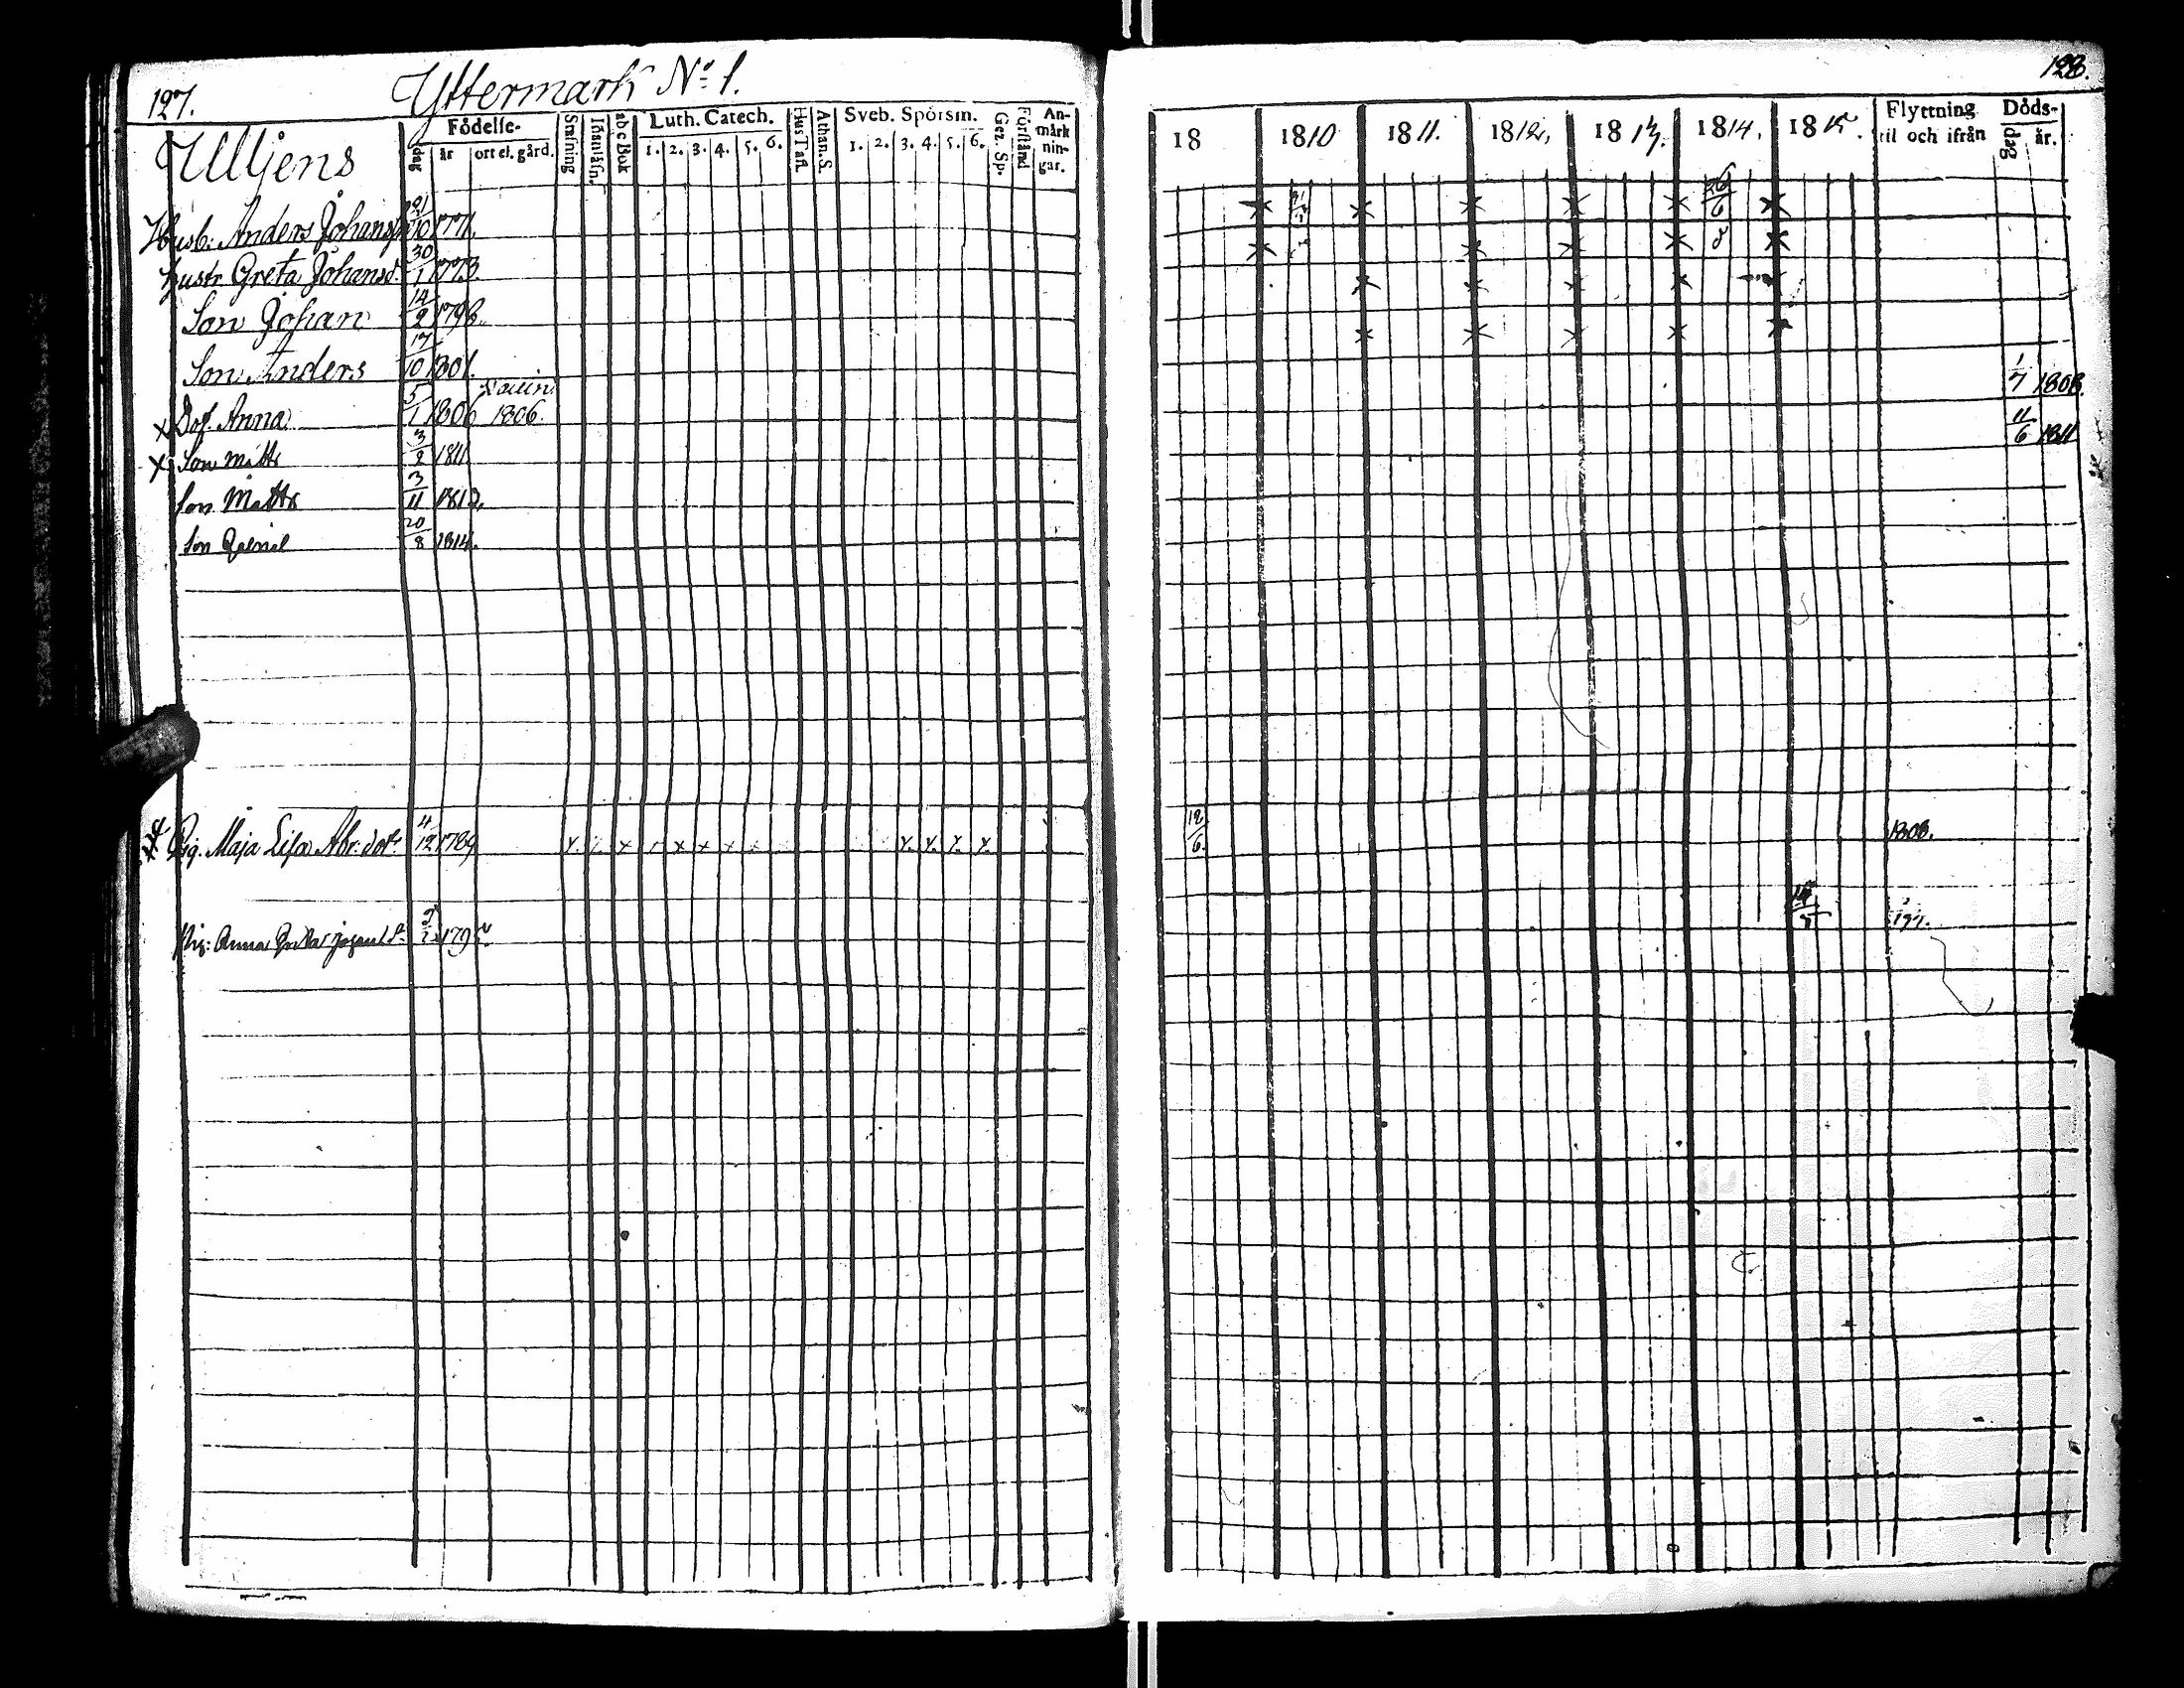 127.
Yttermark No 1.
Ulljens
Födelse-
dag
år
ort el. gård.
Stafning
abc Bok
Luth. Catech.
1. 2. 3. 4. 5. 6.
Hus Tafl.
Athan. S.
Sveb. Spörsm.
1. 2. 3. 4. 5. 6.
Gez. Sp.
Förstånd
An-
märk
nin-
gar.
Husb: Anders Johans 21/10 1771.
Hustr Greta Johansd. 30/1 1773.
Son Johan 14/2 1798.
Son Anders 17/10 1801.
x Dot. Anna 5/1 1806 1806.
x Son Matts 3/2 1811
Son Matts 3/11 1812.
Son 20/8 1814.
Pig. Maja Lisa Abr. dotr 4/12 1789
Pig: Anna 179
128.
18
1810
1811.
1812.
1813.
1814.
1815.
Flyttning
til och ifrån
Döds-
dag
år.
26/6
1/7 1808.
11/6 1811
12/6. 1808.